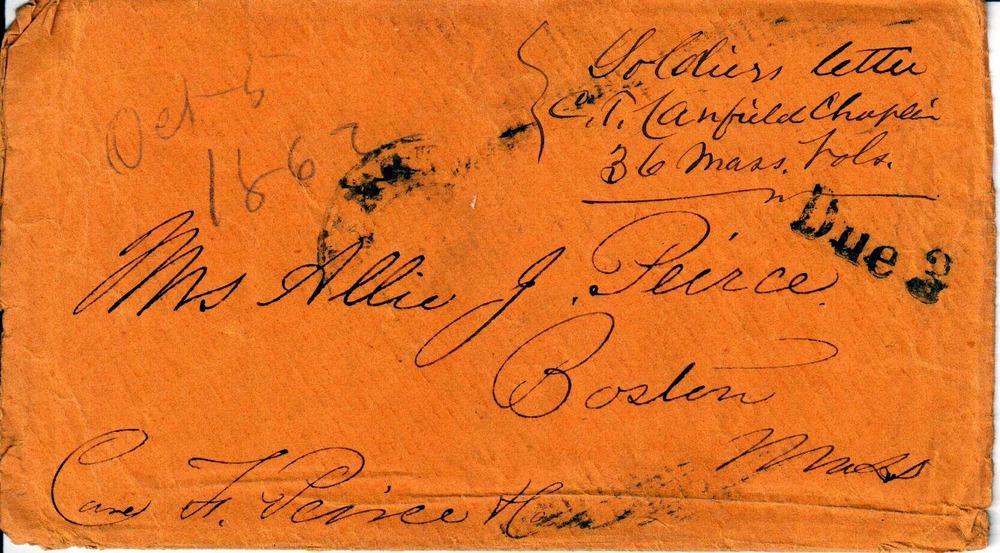 Oct 5
1862
Soldiers letter
C. T. Canfield Chaplin
36 Mass. Vols.
Due 3
Mrs Allie J. Peirce.
Boston
Mass
Care F. Peirce